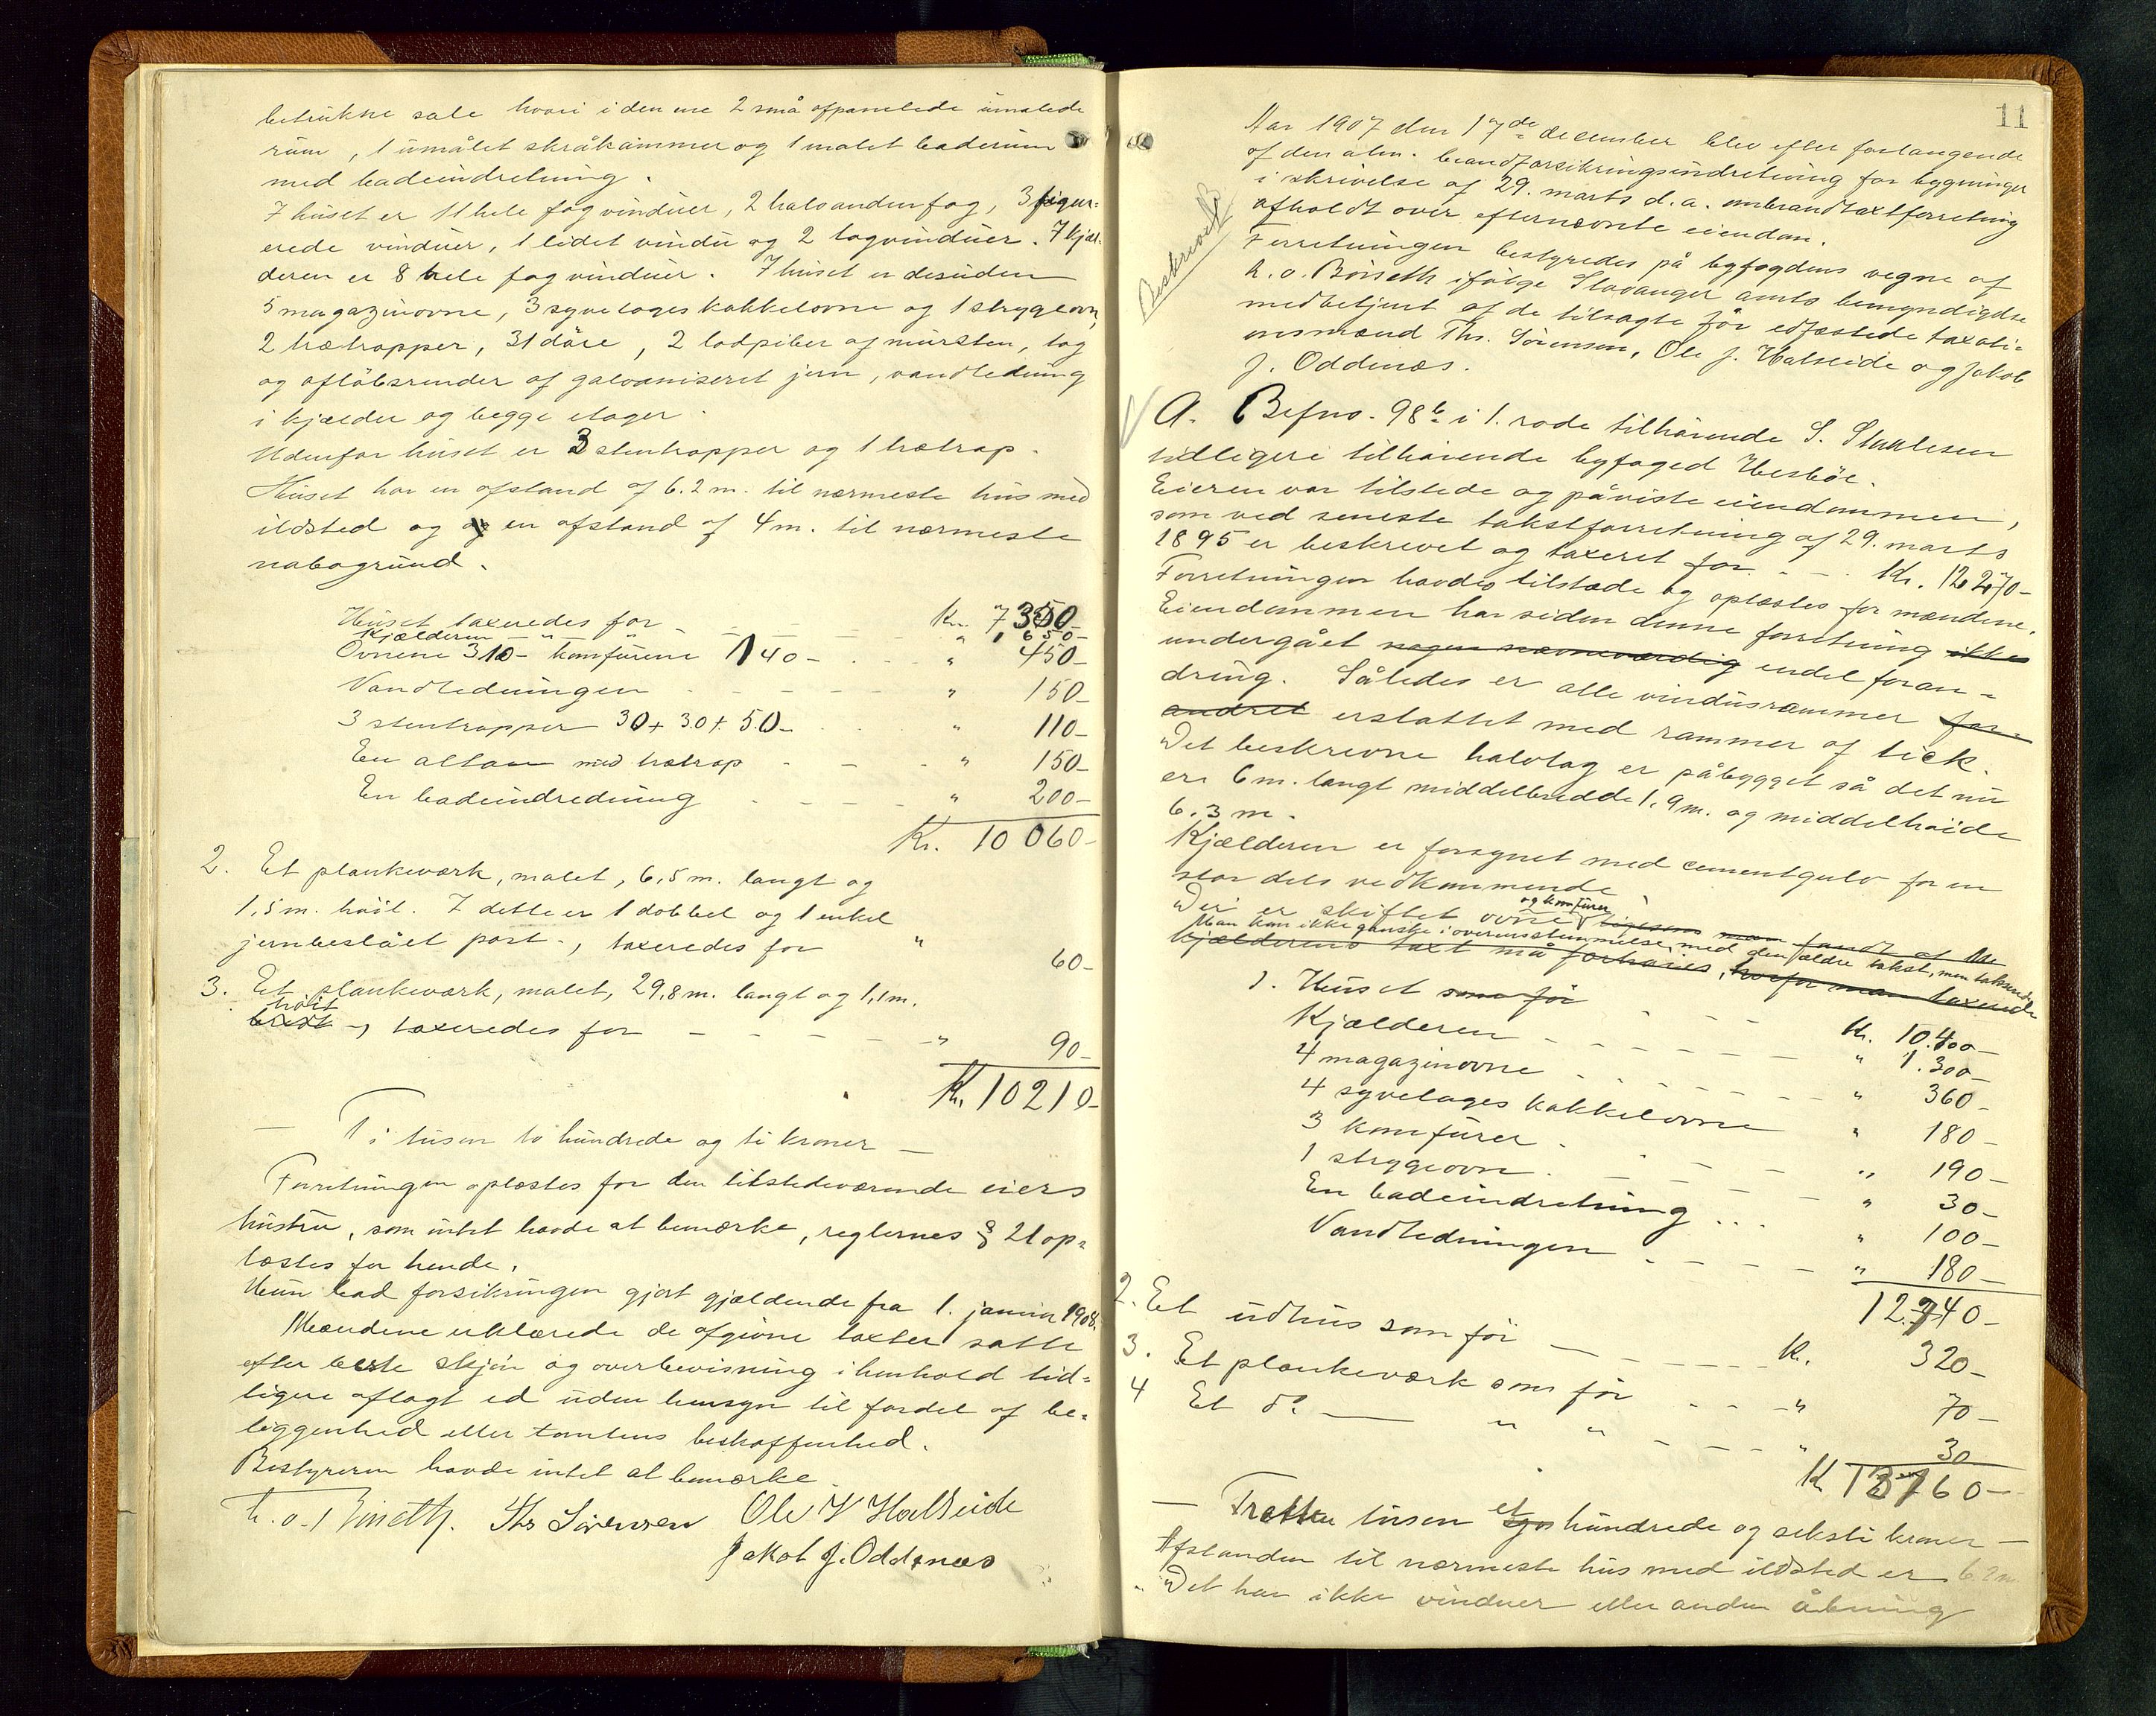 betrukne sale hvori i den ene 2 små afpanelede umalede
rum, 1 umålet skråkammer og 1 malet baderum
med badeindretning.
I huset er 11 hele fag vinduer, 2 halvanden fag, 3 figur-
erede vinduer, 1 lidet vindu og 2 tagvinduer. I kjæl-
deren er 8 hele fag vinduer. I huset er desuden
5 magazinovne, 3 syvetages kakkelovne og 1 strygeovn,
2 trætrapper, 31 döre, 2 lodpiber af mursten, tag
og aflöbsrender af galvaniseret jern, vandledning
i kjælder og begge etager.
Udenfor huset er 3 stentrapper og 1 trætrap.
Huset har en afstand af 6.2 m. til nærmeste hus med
ildsted og en afstand af 4 m. til nærmeste
nabogrund.
Huset taxeredes for - - - Kr. 7350-
Kjælderen - " - " 1650-
Ovnene 310- komfurene 140- . . . " 450-
Vandledningen - - - - " 150-
3 stentrapper 30 + 30 + 50- . . " 110-
En altan med trætrap - - - " 150-
En badeindredning - - - - " 200-
Kr. 10 060-
2. Et plankeværk, malet, 6,5 m. langt og
1,5 m. höit. I dette er 1 dobbel og 1 enkel
jernbeslået port -, taxeredes for " 60-
3. Et plankeværk, malet, 29,8 m. langt og 1,1 m.
höit
bredt -, taxeredes for - - - - - " 90-
Kr. 10210-
— Ti tusen to hundrede og ti kroner —
Forretningen oplæstes for den tilstedeværende eiers
hustru, som intet havde at bemærke, reglernes § 21 op-
læstes for hende.
Hun bad forsikringen gjort gjældende fra 1. januar 1908.
Mændene erklærede de afgivne taxter satte
efter beste skjön og overbevisning i henhold tid-
ligere aflagt ed uden hensyn til fordel af be-
liggenhed eller tomtens beskaffenhed.
Bestyreren havde intet at bemærke.
h. o. Böiseth. Ths Sörensen Ole J Halseide
Jakob J. Oddenæs
11
Aar 1907 den 17de december blev efter forlangende
af den alm. brandforsikringsindretning for bygninger
i skrivelse af 29. marts d.a. ombrandtaxtforretning
afholdt over efternævnte eiendom.
Beskrevet
Forretningen bestyredes på byfogdens vegne af
h. o. Böiseth ifölge Stavanger amts bemyndigelse
medbetjent af de tilsagte för edfæstede taxati-
onsmænd Ths. Sörensen, Ole J. Halseide og Jakob
J. Oddenæs.
A. Befno. 98b i 1. rode tilhörende S. Staalesen
tidligere tilhörende byfoged Hesböe.
Eieren var tilstede og påviste eiendommen,
som ved seneste takstforretning af 29. marts
1895 er beskrevet og taxeret for - - - Kr. 12270-
Forretningen havdes tilstæde og oplæstes for mændene.
Eiendommen har siden denne forretning ikke
undergået nogen nævneværdig endel foran-
dring. Således er alle vindusrammer for-
andret erstattet med rammer af tiek.
Det beskrevne halvtag er påbygget så det nu
er 6 m. langt middelbredde 1.9 m. og middelhöide
6.3 m.
Kjælderen er forsynet med cementgulv for en
stor dels vedkommende.
og komfurer
Der er skiftet ovne ligesom man fandt at de
Man kom ikke ganske i overensstemmelse med den ældre takst, men takserede
kjælderens taxt må forhöies, hvorfor man taxerede
1. Huset som för - - - Kr. 10.400-
Kjælderen - - - - - " 1.300-
4 magazinovne - - - - - " 360-
4 syvetages kakkelovne " 180-
3 komfurer . - - - " 190-
1 strygeovn . - - - " 30-
En badeindretning . . . " 100-
Vandledningen - - - - " 180-
12.740-
2. Et udhus som för - - - - - Kr. 320-
3. Et plankeværk som för . - - - " 70-
4 Et do. — " " - - - " 30
Kr 13160-
— Tretten tusen et hundrede og seksti kroner —
Afstanden til nærmeste hus med ildsted er 6.2 m
Det har ikke vinduer eller anden åbning